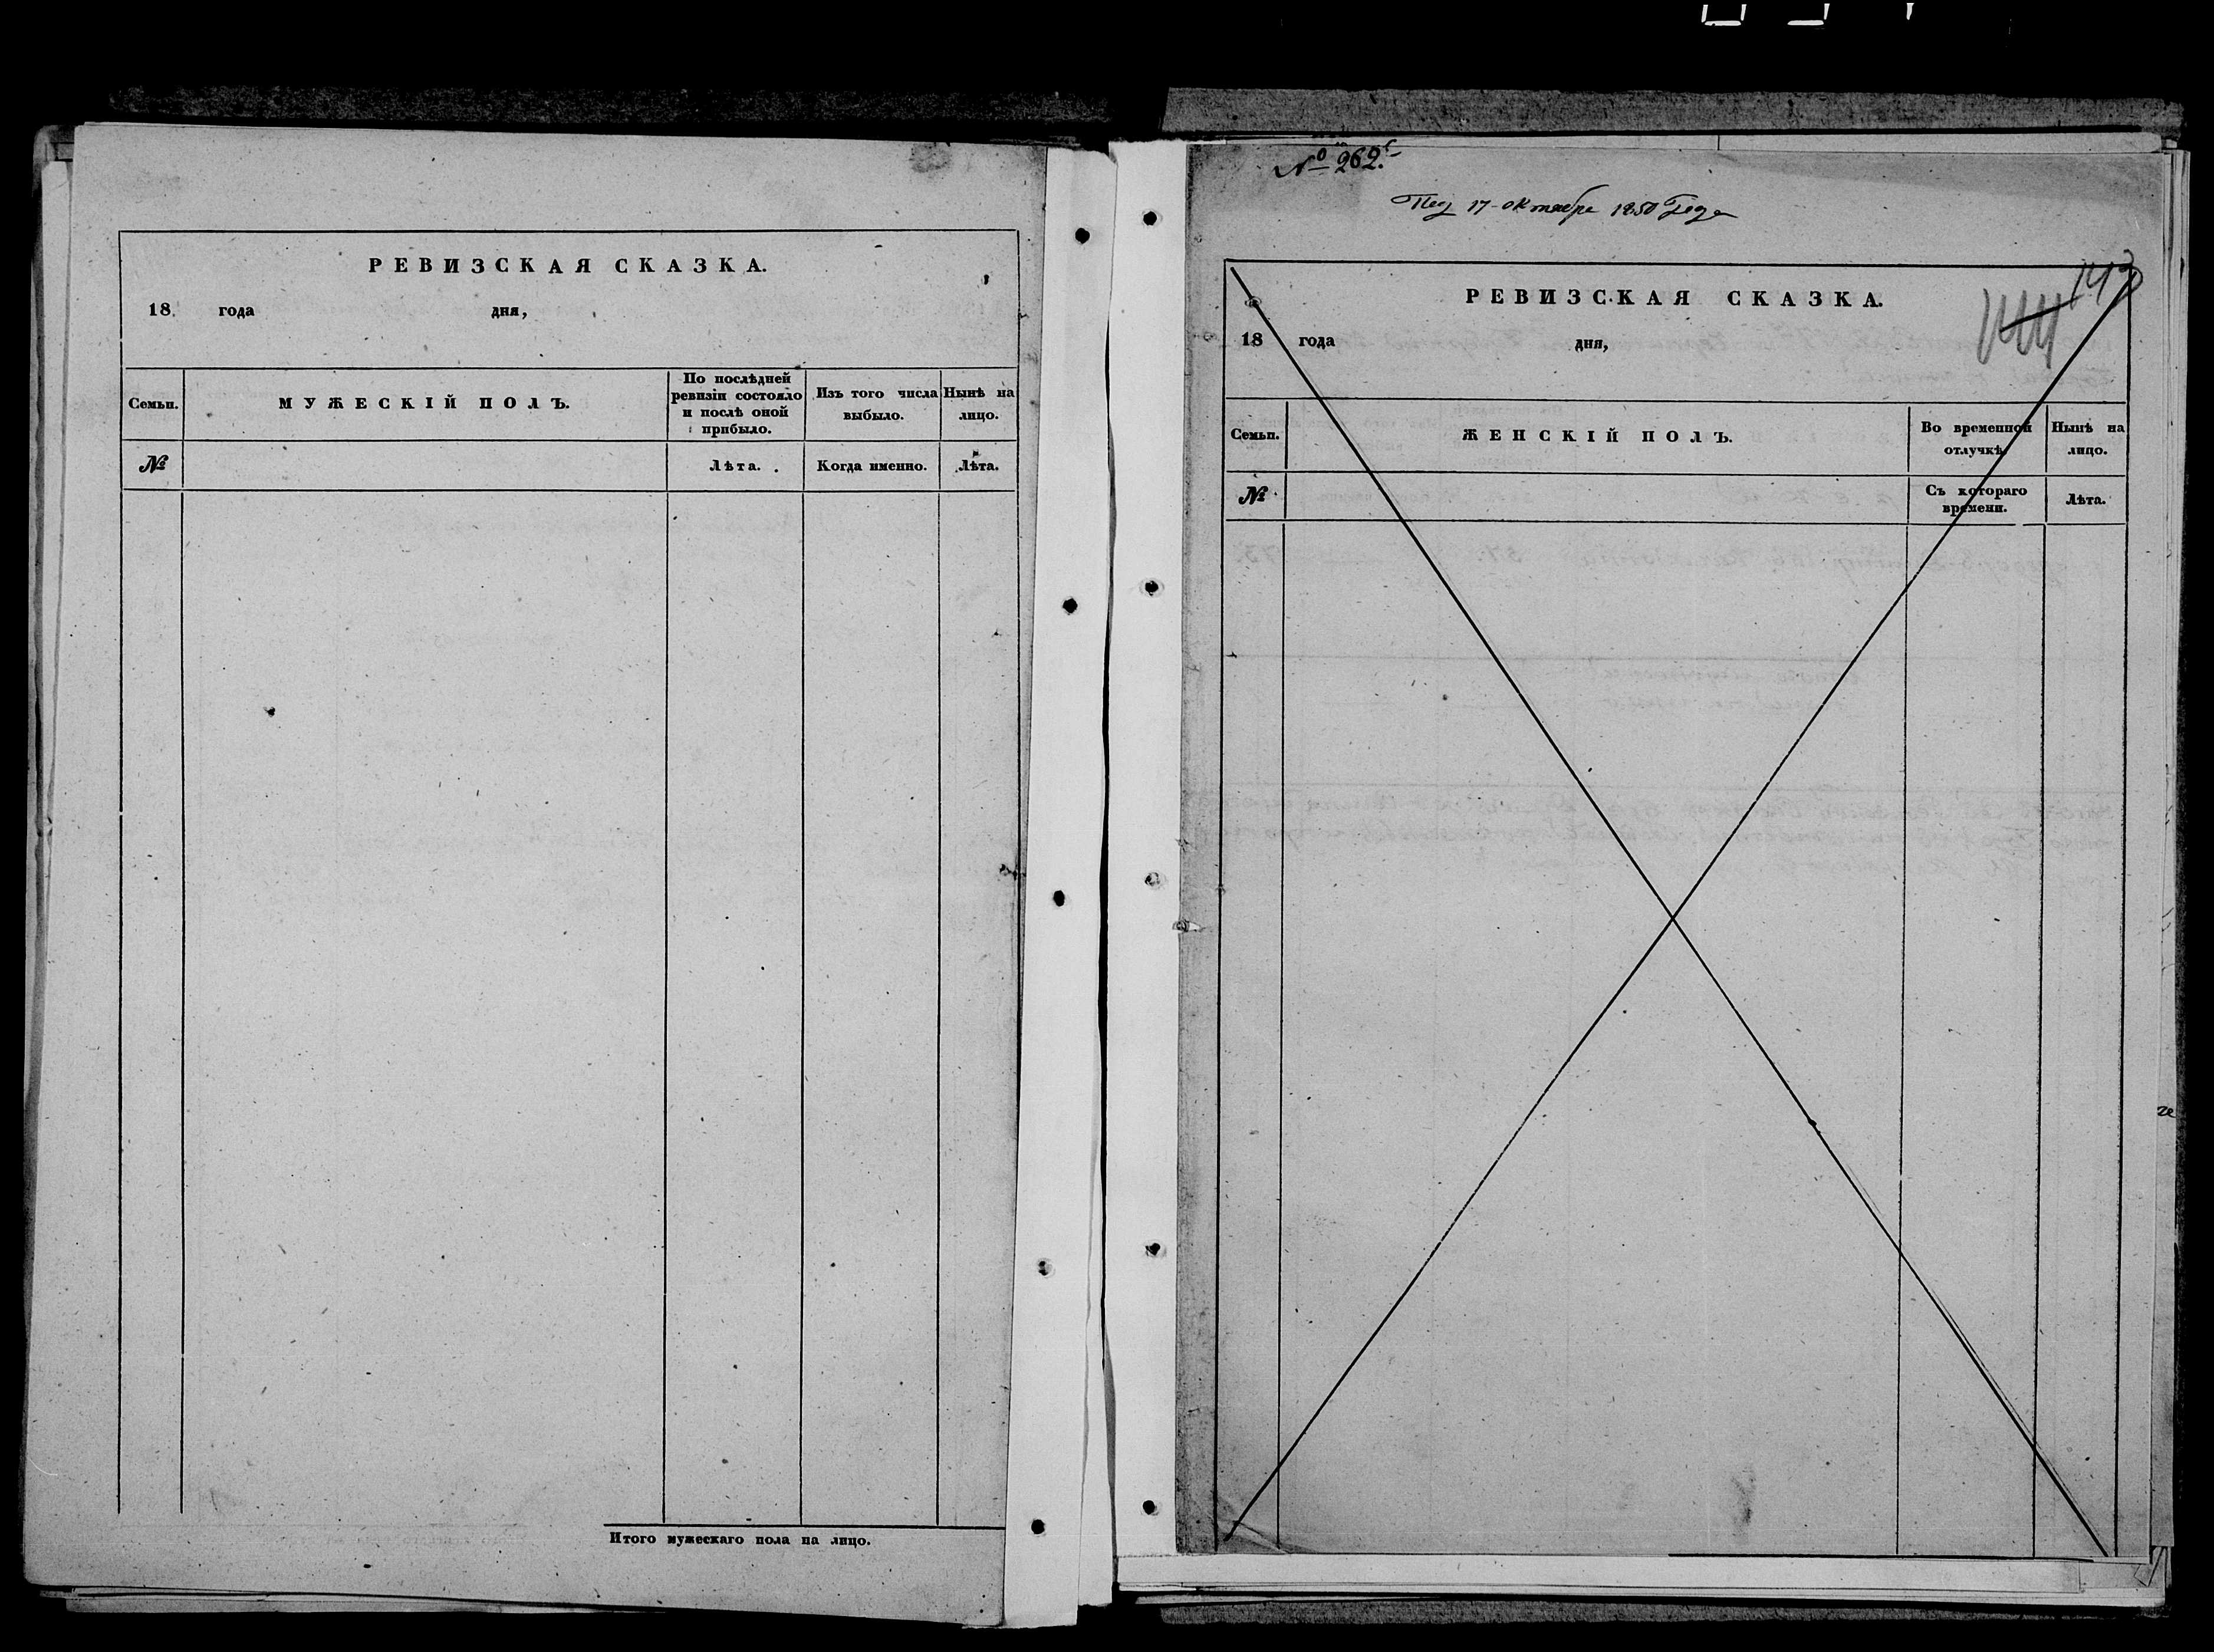 РЕВИЗСКАЯ СКАЗКА.
18 года дня,
Семьи. МУЖЕСКІЙ ПОЛЪ. По послѣдней ревизіи состояло и послѣ оной прибыло. Изъ того числа выбыло. Нынѣ на лицо.
№ Лѣта. Когда именно. Лѣта.
Итого мужескаго пола на лицо.
№ 262.
17 октября 1850 года
РЕВИЗСКАЯ СКАЗКА.
18 года дня,
Семьи. ЖЕНСКІЙ ПОЛЪ. Во временной отлучкѣ. Нынѣ на лицо.
№ Съ котораго времени. Лѣта.